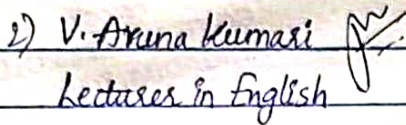 2) V. Aruna Kumari
Lecturer in English